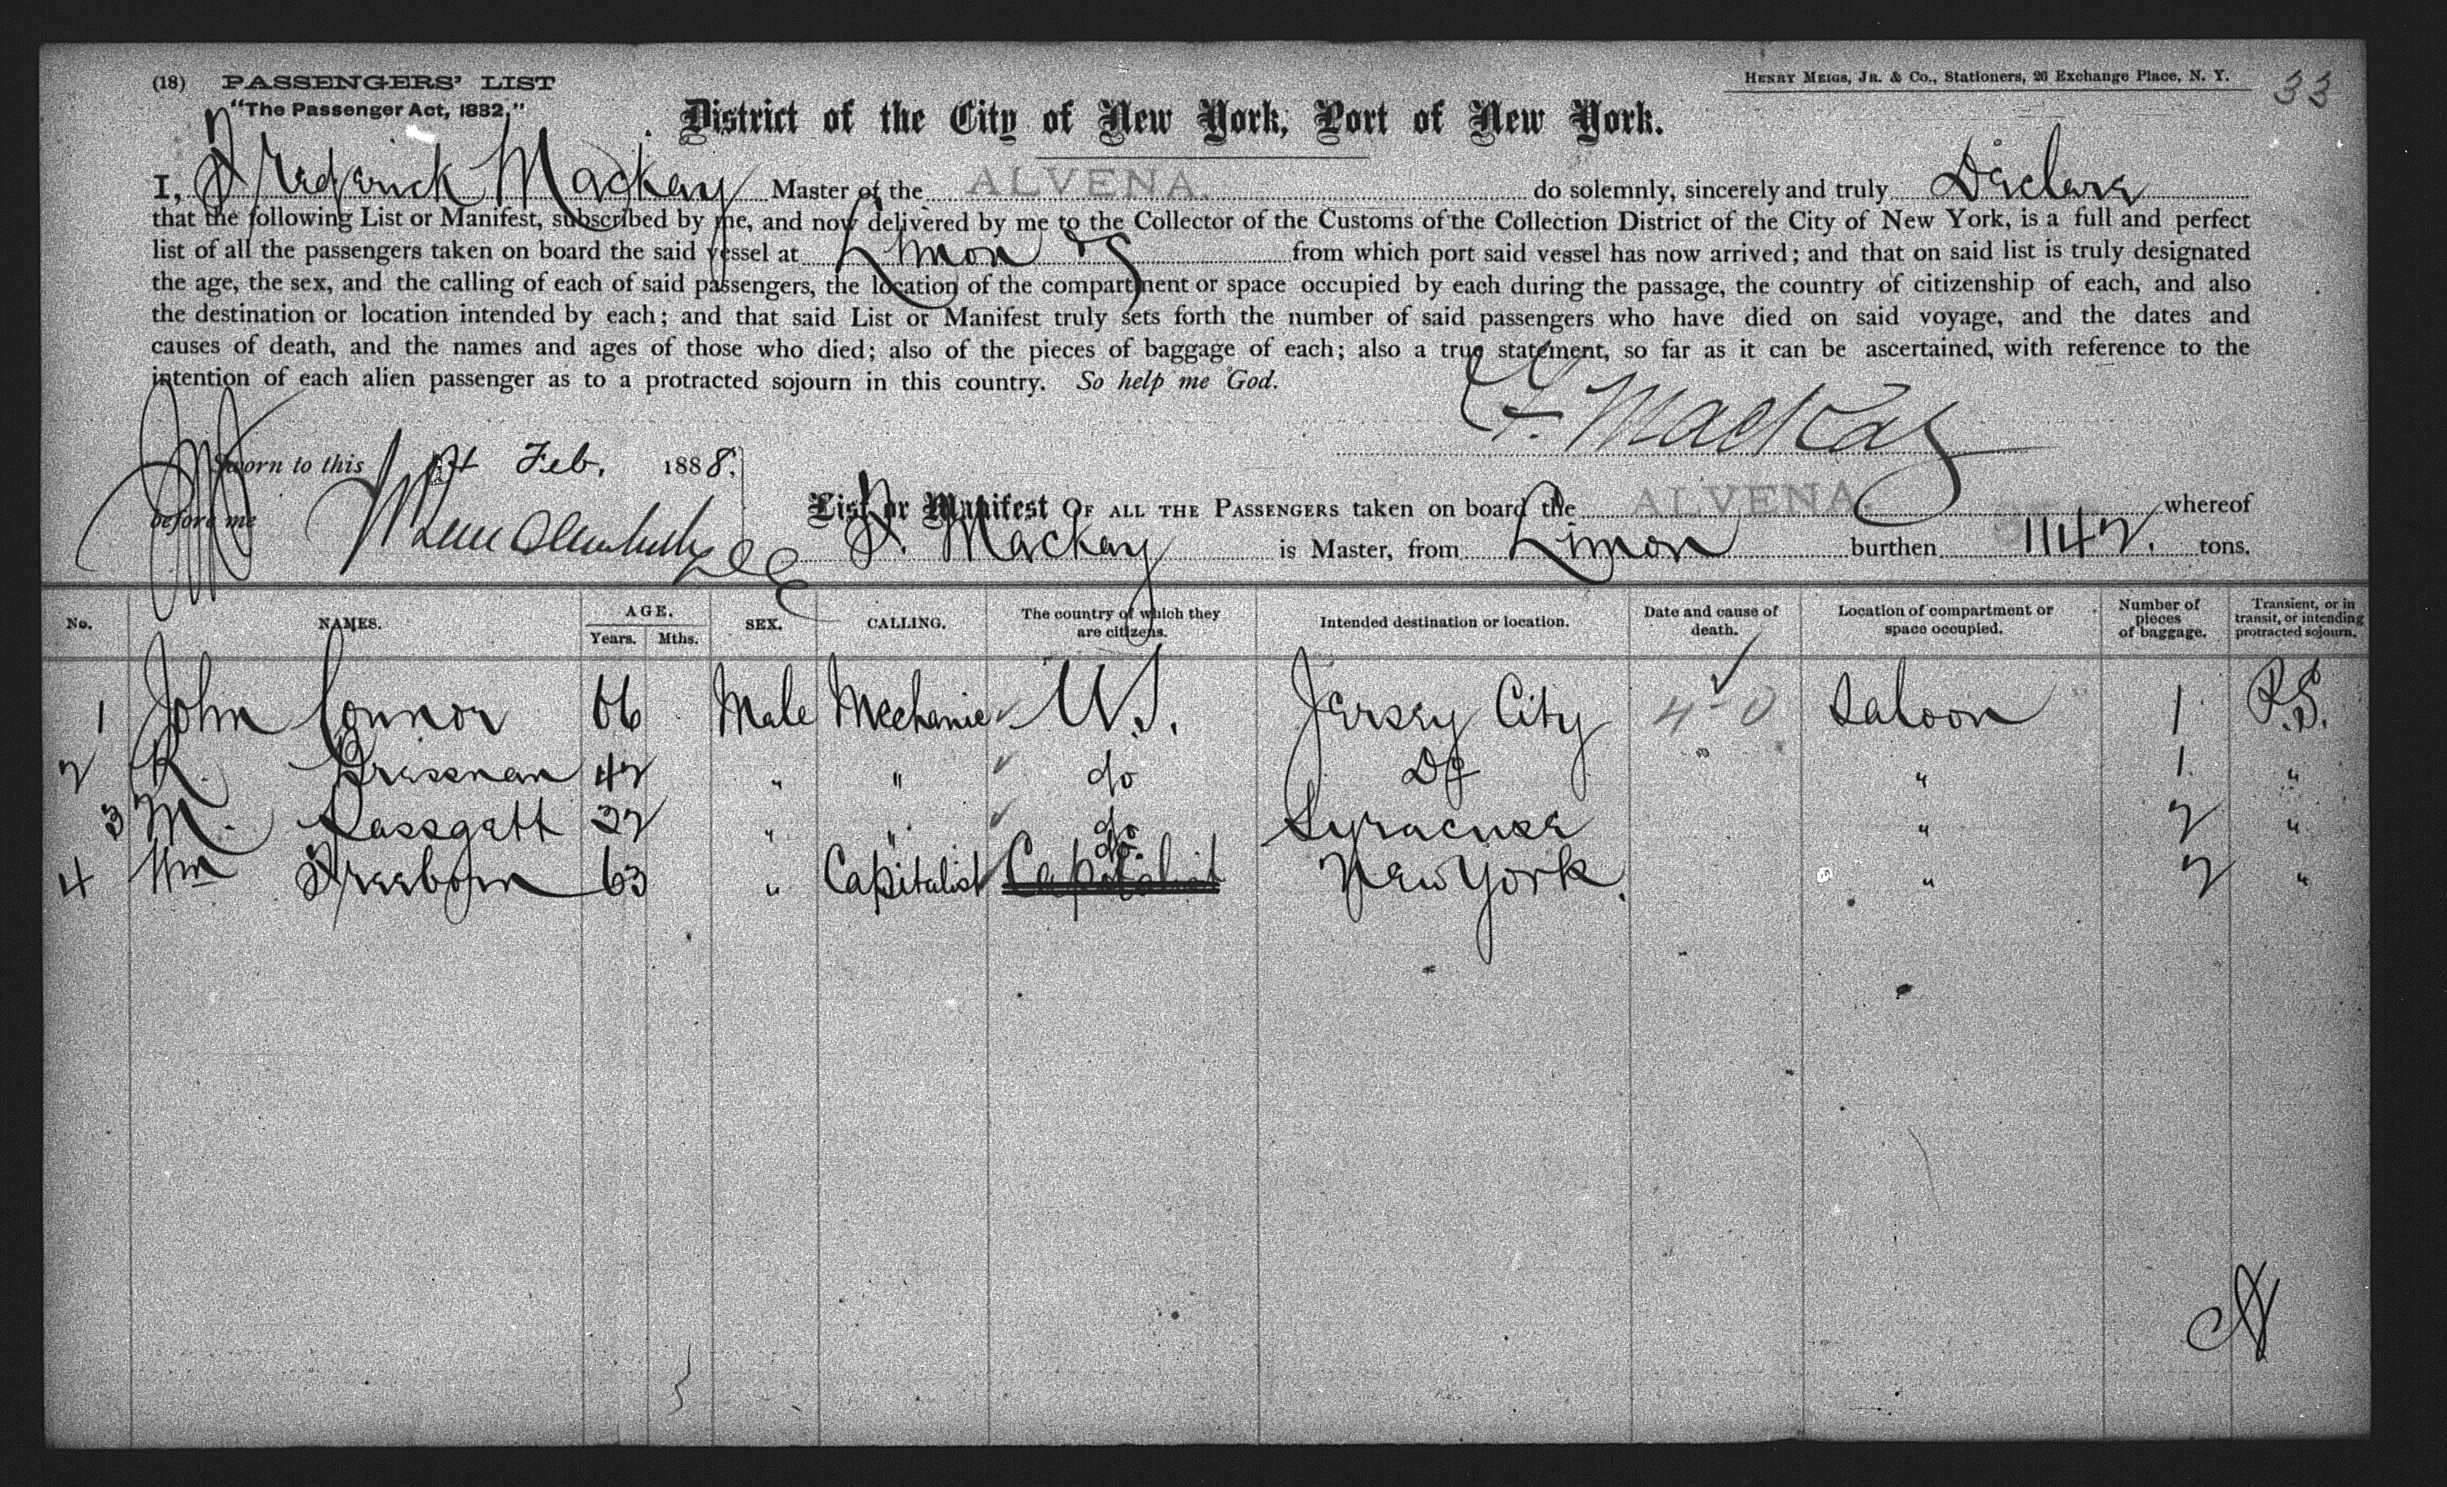 (18) PASSENGERS' LIST
HENRY MEIGS, JR. & CO., Stationers, 26 Exchange Place, N. Y.
33
"The Passenger Act, 1882,"
District of the City of New York, Port of New York.
I, Frederick Mackay Master of the ALVENA. do solemnly, sincerely and truly Declare
that the following List or Manifest, subscribed by me, and now delivered by me to the Collector of the Customs of the Collection District of the City of New York, is a full and perfect
list of all the passengers taken on board the said vessel at Limon &c from which port said vessel has now arrived; and that on said list is truly designated
the age, the sex, and the calling of each of said passengers, the location of the compartment or space occupied by each during the passage, the country of citizenship of each, and also
the destination or location intended by each; and that said List or Manifest truly sets forth the number of said passengers who have died on said voyage, and the dates and
causes of death, and the names and ages of those who died; also of the pieces of baggage of each; also a true statement, so far as it can be ascertained, with reference to the
intention of each alien passenger as to a protracted sojourn in this country. So help me God.
F. Mackay
Sworn to this 1st Feb. 1888.
before me
List or Manifest OF ALL THE PASSENGERS taken on board the ALVENA. whereof
F. Mackay is Master, from Limon burthen 1142. tons.
No. NAMES. AGE. Years. Mths. SEX. CALLING. The country of which they are citizens. Intended destination or location. Date and cause of death. Location of compartment or space occupied. Number of pieces of baggage. Transient, or in transit, or intending protracted sojourn.
1 John Connor 66 Male Mechanic U.S. Jersey City 4-0 Saloon 1 P.S.
2 R. 42 " " do Do " 1. "
3 M. 32 " " do Syracuse " 2 "
4 Wm Freeborn 63 " Capitalist Capitalist do. New York. " 2 "